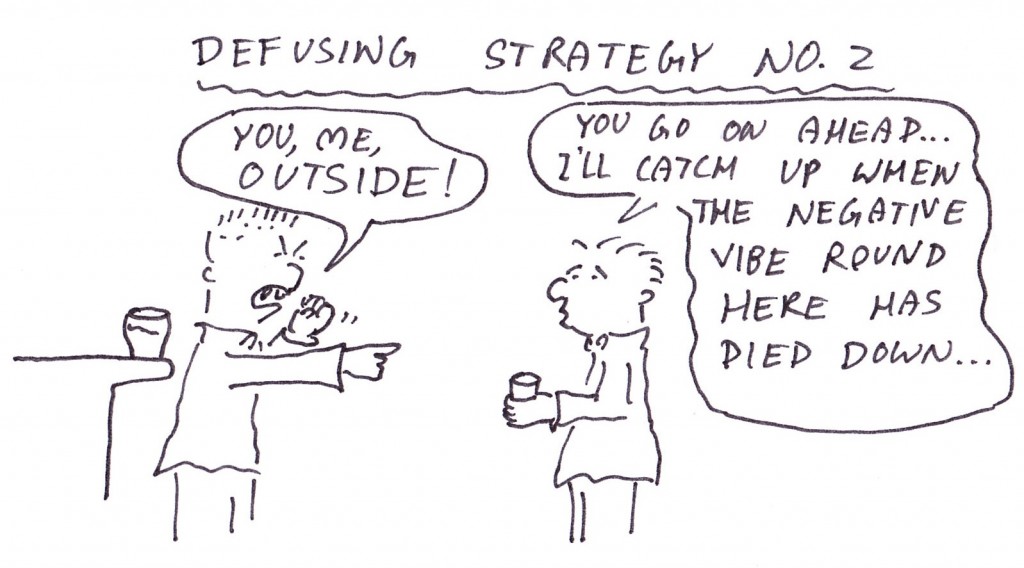 DEFUSING STRATEGY NO. 2
YOU, ME,
OUTSIDE!
YOU GO ON AHEAD...
I'LL CATCH UP WHEN
THE NEGATIVE
VIBE ROUND
HERE HAS
DIED DOWN...